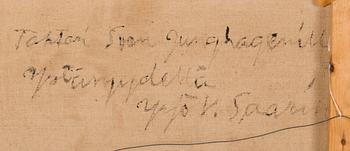 Taiteili Sven Junghagenill
Ystävyydellä
Yrjö V. Saarin